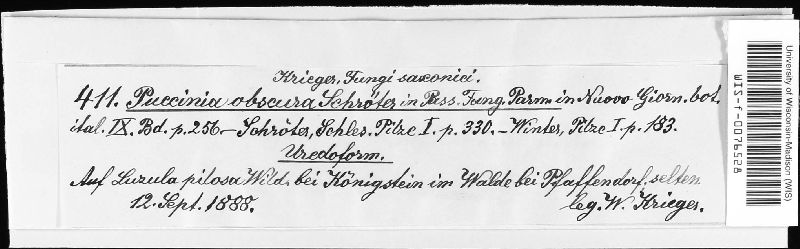 Krieger, Fungi saxonici.
411. Puccinia obscura Schröter in Pass. Fung. Parm. in Nuovo Giorn. bot.
ital. IX. Bd. p. 256. — Schröter, Schles. Pilze I. p. 330. — Winter, Pilze I. p. 183.
Uredoform.
Auf Luzula pilosa Wild. bei Königstein im Walde bei Pfaffendorf, selten
12. Sept. 1888. leg. W. Krieger.
University of Wisconsin-Madison (WIS)
WIS-f-0076528